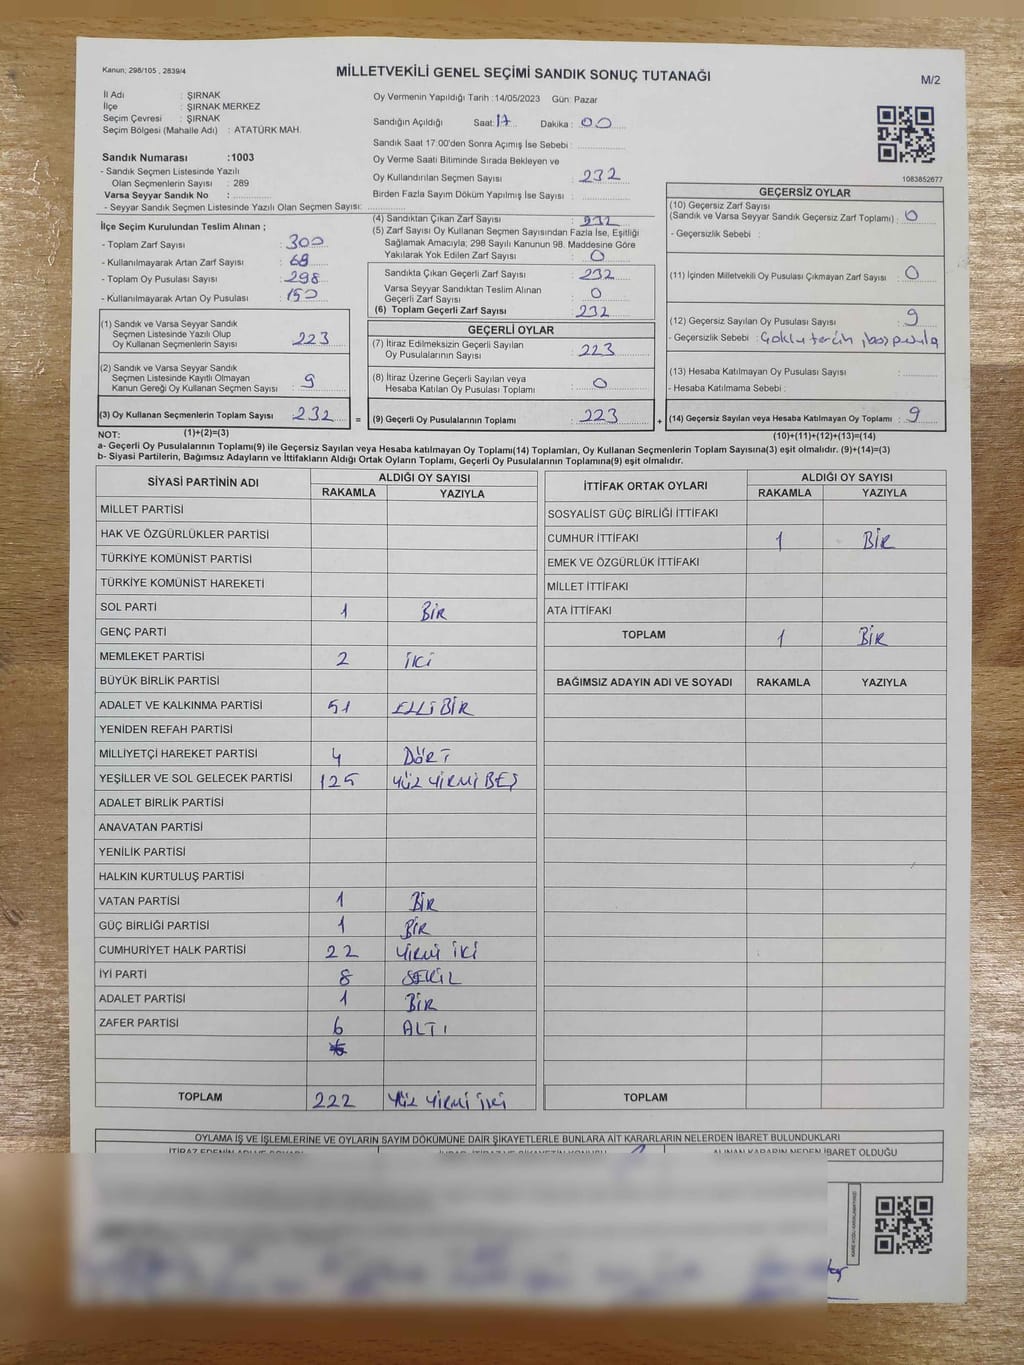 Kanun; 298/105 , 2839/4
MİLLETVEKİLİ GENEL SEÇİMİ SANDIK SONUÇ TUTANAĞI
M/2
İl Adı : ŞIRNAK
İlçe : ŞIRNAK MERKEZ
Seçim Çevresi : ŞIRNAK
Seçim Bölgesi (Mahalle Adı) : ATATÜRK MAH.
Sandık Numarası :1003
- Sandık Seçmen Listesinde Yazılı
Olan Seçmenlerin Sayısı : 289
Varsa Seyyar Sandık No :
- Seyyar Sandık Seçmen Listesinde Yazılı Olan Seçmen Sayısı:
Oy Vermenin Yapıldığı Tarih :14/05/2023 Gün: Pazar
Sandığın Açıldığı Saat: 17 Dakika : 00
Sandık Saat 17:00'den Sonra Açımış İse Sebebi :
Oy Verme Saati Bitiminde Sırada Bekleyen ve
Oy Kullandırılan Seçmen Sayısı : 232
Birden Fazla Sayım Döküm Yapılmış İse Sayısı :
1083852677
İlçe Seçim Kurulundan Teslim Alınan ;
- Toplam Zarf Sayısı : 300
- Kullanılmayarak Artan Zarf Sayısı : 68
- Toplam Oy Pusulası Sayısı : 298
- Kullanılmayarak Artan Oy Pusulası : 150
(1) Sandık ve Varsa Seyyar Sandık
Seçmen Listesinde Yazılı Olup
Oy Kullanan Seçmenlerin Sayısı : 223
(2) Sandık ve Varsa Seyyar Sandık
Seçmen Listesinde Kayıtlı Olmayan
Kanun Gereği Oy Kullanan Seçmen Sayısı : 9
(3) Oy Kullanan Seçmenlerin Toplam Sayısı : 232 =
(1)+(2)=(3)
(4) Sandıktan Çıkan Zarf Sayısı : 232
(5) Zarf Sayısı Oy Kullanan Seçmen Sayısından Fazla İse, Eşitliği
Sağlamak Amacıyla; 298 Sayılı Kanunun 98. Maddesine Göre
Yakılarak Yok Edilen Zarf Sayısı : 0
Sandıkta Çıkan Geçerli Zarf Sayısı : 232
Varsa Seyyar Sandıktan Teslim Alınan
Geçerli Zarf Sayısı : 0
(6) Toplam Geçerli Zarf Sayısı : 232
GEÇERLİ OYLAR
(7) İtiraz Edilmeksizin Geçerli Sayılan
Oy Pusulalarının Sayısı : 223
(8) İtiraz Üzerine Geçerli Sayılan veya
Hesaba Katılan Oy Pusulaları Toplamı : 0
(9) Geçerli Oy Pusulalarının Toplamı : 223 +
GEÇERSİZ OYLAR
(10) Geçersiz Zarf Sayısı
(Sandık ve Varsa Seyyar Sandık Geçersiz Zarf Toplamı) : 0
- Geçersizlik Sebebi :
(11) İçinden Milletvekili Oy Pusulası Çıkmayan Zarf Sayısı : 0
(12) Geçersiz Sayılan Oy Pusulası Sayısı : 9
- Geçersizlik Sebebi : Çoklu tercih, boş pusula
(13) Hesaba Katılmayan Oy Pusulası Sayısı :
- Hesaba Katılmama Sebebi :
(14) Geçersiz Sayılan veya Hesaba Katılmayan Oy Toplamı : 9
(10)+(11)+(12)+(13)=(14)
NOT:
a- Geçerli Oy Pusulalarının Toplamı(9) ile Geçersiz Sayılan veya Hesaba katılmayan Oy Toplamı(14) Toplamları, Oy Kullanan Seçmenlerin Toplam Sayısına(3) eşit olmalıdır. (9)+(14)=(3)
b- Siyasi Partilerin, Bağımsız Adayların ve İttifakların Aldığı Ortak Oyların Toplamı, Geçerli Oy Pusulalarının Toplamına(9) eşit olmalıdır.
SİYASİ PARTİNİN ADI ALDIĞI OY SAYISI
RAKAMLA YAZIYLA
MİLLET PARTİSİ
HAK VE ÖZGÜRLÜKLER PARTİSİ
TÜRKİYE KOMÜNİST PARTİSİ
TÜRKİYE KOMÜNİST HAREKETİ
SOL PARTİ 1 BİR
GENÇ PARTİ
MEMLEKET PARTİSİ 2 İKİ
BÜYÜK BİRLİK PARTİSİ
ADALET VE KALKINMA PARTİSİ 51 ELLİBİR
YENİDEN REFAH PARTİSİ
MİLLİYETÇİ HAREKET PARTİSİ 4 DÖRT
YEŞİLLER VE SOL GELECEK PARTİSİ 125 YÜZ YİRMİ BEŞ
ADALET BİRLİK PARTİSİ
ANAVATAN PARTİSİ
YENİLİK PARTİSİ
HALKIN KURTULUŞ PARTİSİ
VATAN PARTİSİ 1 BİR
GÜÇ BİRLİĞİ PARTİSİ 1 BİR
CUMHURİYET HALK PARTİSİ 22 YİRMİ İKİ
İYİ PARTİ 8 SEKİZ
ADALET PARTİSİ 1 BİR
ZAFER PARTİSİ 6 ALTI
TOPLAM 222 YÜZ YİRMİ İKİ
İTTİFAK ORTAK OYLARI ALDIĞI OY SAYISI
RAKAMLA YAZIYLA
SOSYALİST GÜÇ BİRLİĞİ İTTİFAKI
CUMHUR İTTİFAKI 1 BİR
EMEK VE ÖZGÜRLÜK İTTİFAKI
MİLLET İTTİFAKI
ATA İTTİFAKI
TOPLAM 1 BİR
BAĞIMSIZ ADAYIN ADI VE SOYADI RAKAMLA YAZIYLA
TOPLAM
OYLAMA İŞ VE İŞLEMLERİNE VE OYLARIN SAYIM DÖKÜMÜNE DAİR ŞİKAYETLERLE BUNLARA AİT KARARLARIN NELERDEN İBARET BULUNDUKLARI
ALINAN KARARIN NEDEN İBARET OLDUĞU